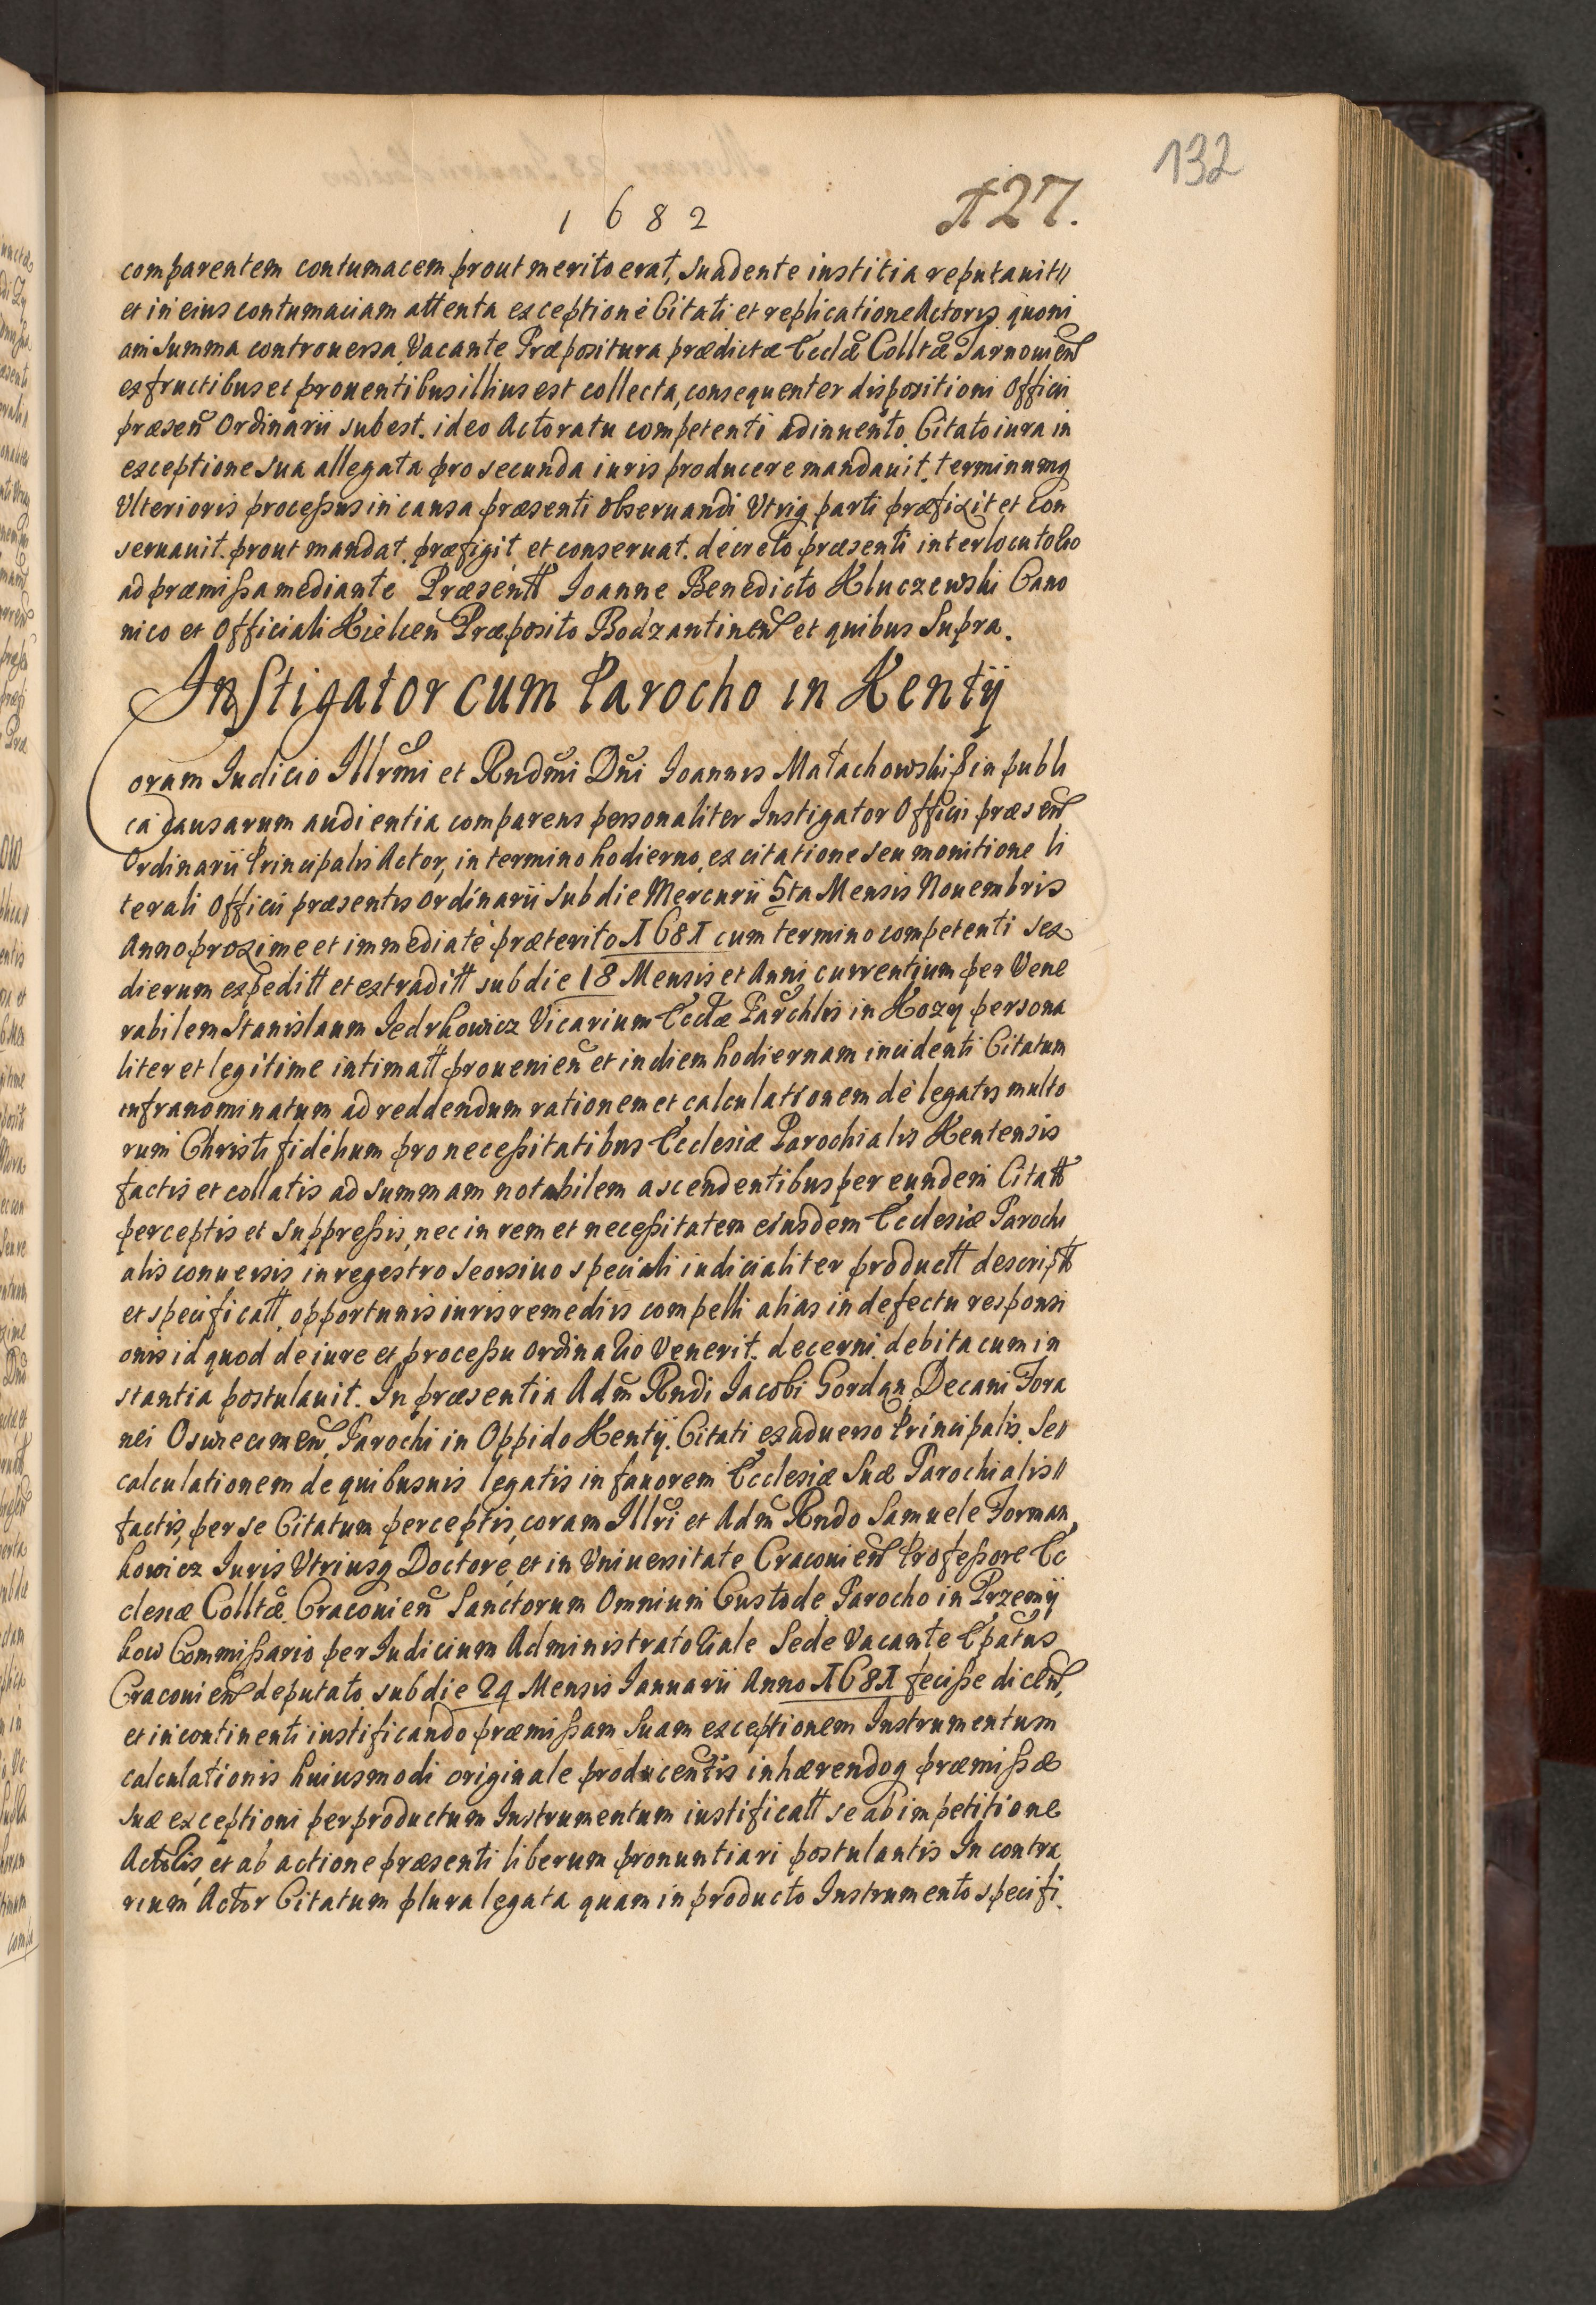 132
127.
1682
comparentem contumacem prout merito erat, suadente iustitia reputauit
et in eius contumaciam attenta exceptione Citati et replicatione Actoris quoni
am summa controuersa Vacante Præpositura prædictæ Ecclæ Colltæ Tarnouien
ex fructibus et prouentibus illius est collecta, consequenter dispositioni Officii
præsen Ordinarii subest. ideo Actoratu competenti adinuento. Citato iura in
exceptione sua allegata pro secunda iuris producere mandauit. terminumq
Ulterioris processus in causa præsenti obseruandi Utriq parti præfixit et con
seruauit. prout mandat. præfigit et conseruat. decreto præsenti interlocutorio
ad præmissa mediante Præsentt Ioanne Benedicto Kluczewski Cano
nico et Officiali Kielcen Præposito Bodzantinen et quibus Supra.
Instigator cum Parocho in Kenty
Coram Iudicio Illrmi et Rndmi Dni Ioannis Małachowski Ein publi
ca causarum audientia comparens personaliter Instigator Officii præsen
Ordinarii Principalis Actor, in termino hodierno, ex citatione seu monitione li
terali Officii præsentis Ordinarii sub die Mercurii 5ta Mensis Nouembris
Anno proxime et immediate præterito 1681 cum termino competenti sex
dierum expeditt et extraditt sub die 18 Mensis et Anni currentium per Vene
rabilem Stanislaum Jedrkowicz Vicarium Ecclæ Parchlis in Kozy persona
liter et legitime intimatt prouenien et in diem hodiernam incidenti Citatum
infranominatum ad reddendum rationem et calculationem de legatis multo
rum Christi fidelium pro necessitatibus Ecclesiæ Parochialis Kentensis
factis et collatis ad summam notabilem ascendentibus per eundem Citatt
perceptis et suppressis, nec in rem et necessitatem eiusdem Ecclesiæ Parochi
alis conuersis in regestro seorsiuo speciali iudicialiter productt descriptt
et specificatt, opportunis iuris remediis compelli alias in defectu responsi
onis id quod de iure et processu ordinario Venerit. decerni. debita cum in
stantia postulauit. In præsentia Adm Rndi Iacobi Gordan Decani Fora
nei Oswiecimen, Parochi in Oppido Kenty. Citati ex aduerso Principalis. Se
calculationem de quibusuis legatis in fauorem Ecclesiæ Suæ Parochialis
factis, per se Citatum perceptis, coram Illri et Adm Rndo Samuele Forman
kowicz Iuris Utriusq Doctore, et in Uniuersitate Cracouien Professore Ec
clesiæ Colltæ Cracouien Sanctorum Omnium Custode Parocho in Przemy
kow Commissario per Iudicium Administratoriale Sede Vacante Epatus
Cracouien deputato sub die 24 Mensis Ianuarii Anno 1681 fecisse dicen,
et incontinenti iustificando præmissam Suam exceptionem Instrumentum
calculationis huiusmodi originale producentis inhærendoq præmissæ
suæ exceptioni per productum Instrumentum iustificatt se ab impetitione
Actoris, et ab actione præsenti liberum pronuntiari postulantis In contra
rium Actor Citatum plura legata quam in producto Instrumento specifi